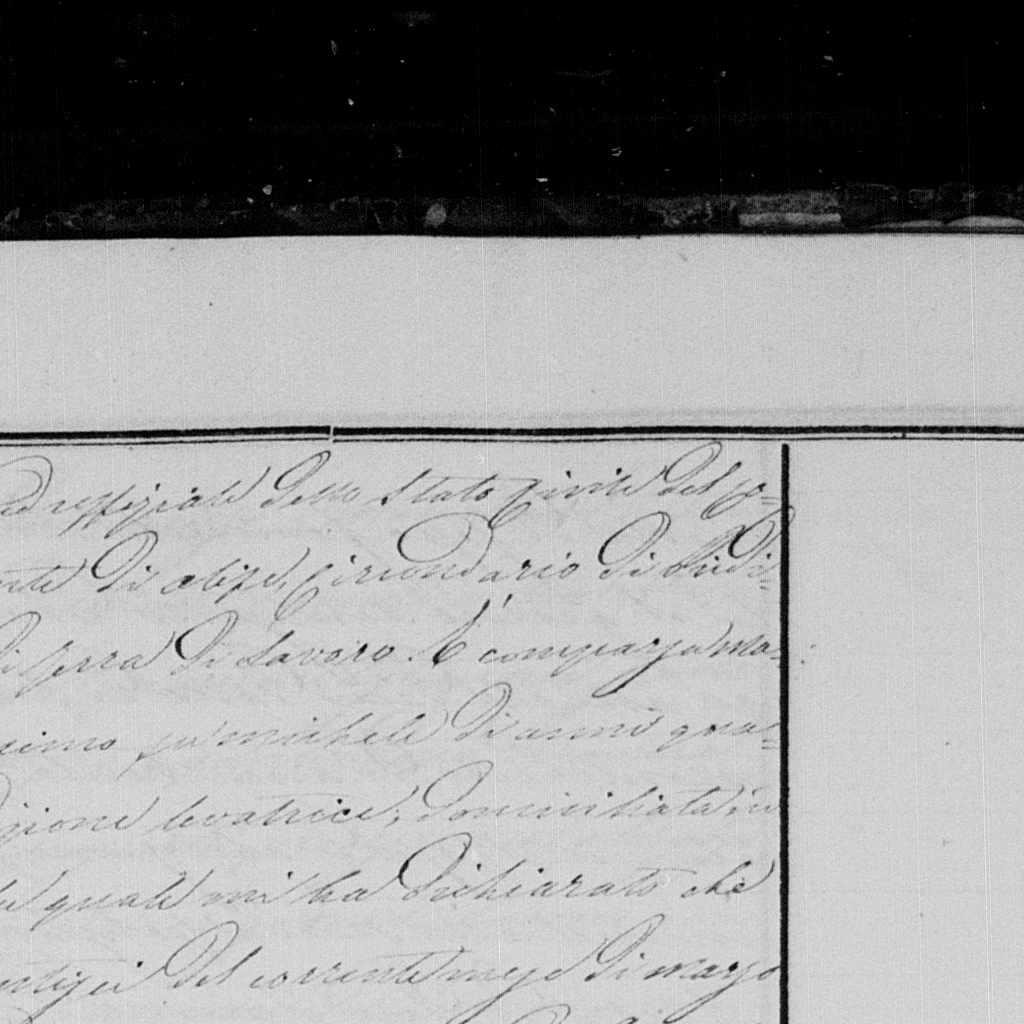 ed uffiziale dello Stato Civile del co=
nte di Alife, Circondario di Piedi=
di Terra di Lavoro. È comparsa Ma=
simo fu Michele di anni qua=
gione levatrice, domiciliata in
la quale mi ha dichiarato che
entisei del corrente mese di marzo